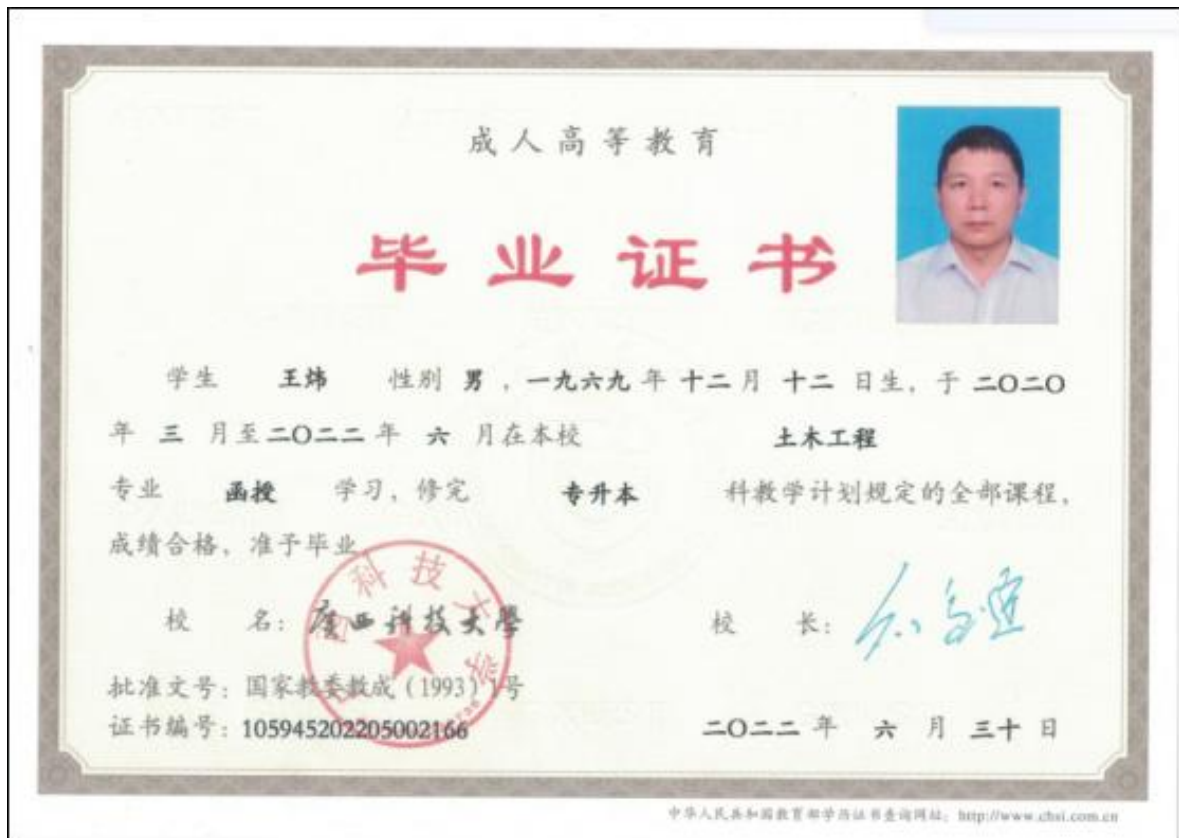 成人高等教育
毕业证书
学生 王炜 性别 男，一九六九年十二月十二日生，于二〇二〇
年 三 月至二〇二二年 六 月在本校 土木工程
专业 函授 学习，修完 专升本 科教学计划规定的全部课程，
成绩合格，准予毕业
校 名：广西科技大学
校 长：
批准文号：国家教委教成（1993）1号
证书编号：105945202205002166
二〇二二年 六 月 三十 日
中华人民共和国教育部学历证书查询网址：http://www.chsi.com.cn